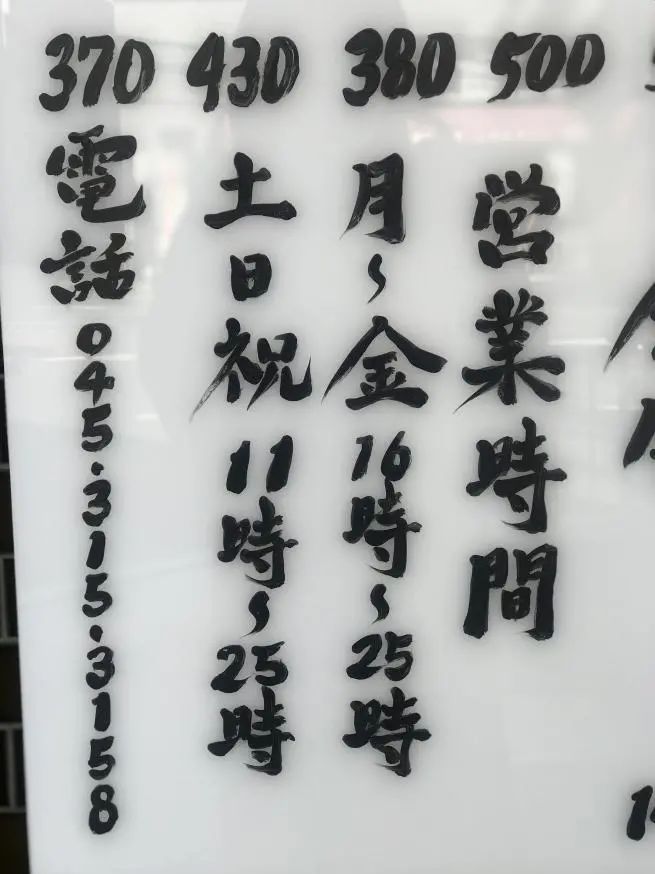 500
380
430
370
営業時間
月~金 16時~25時
土日祝 11時~25時
電話 045.315.3158